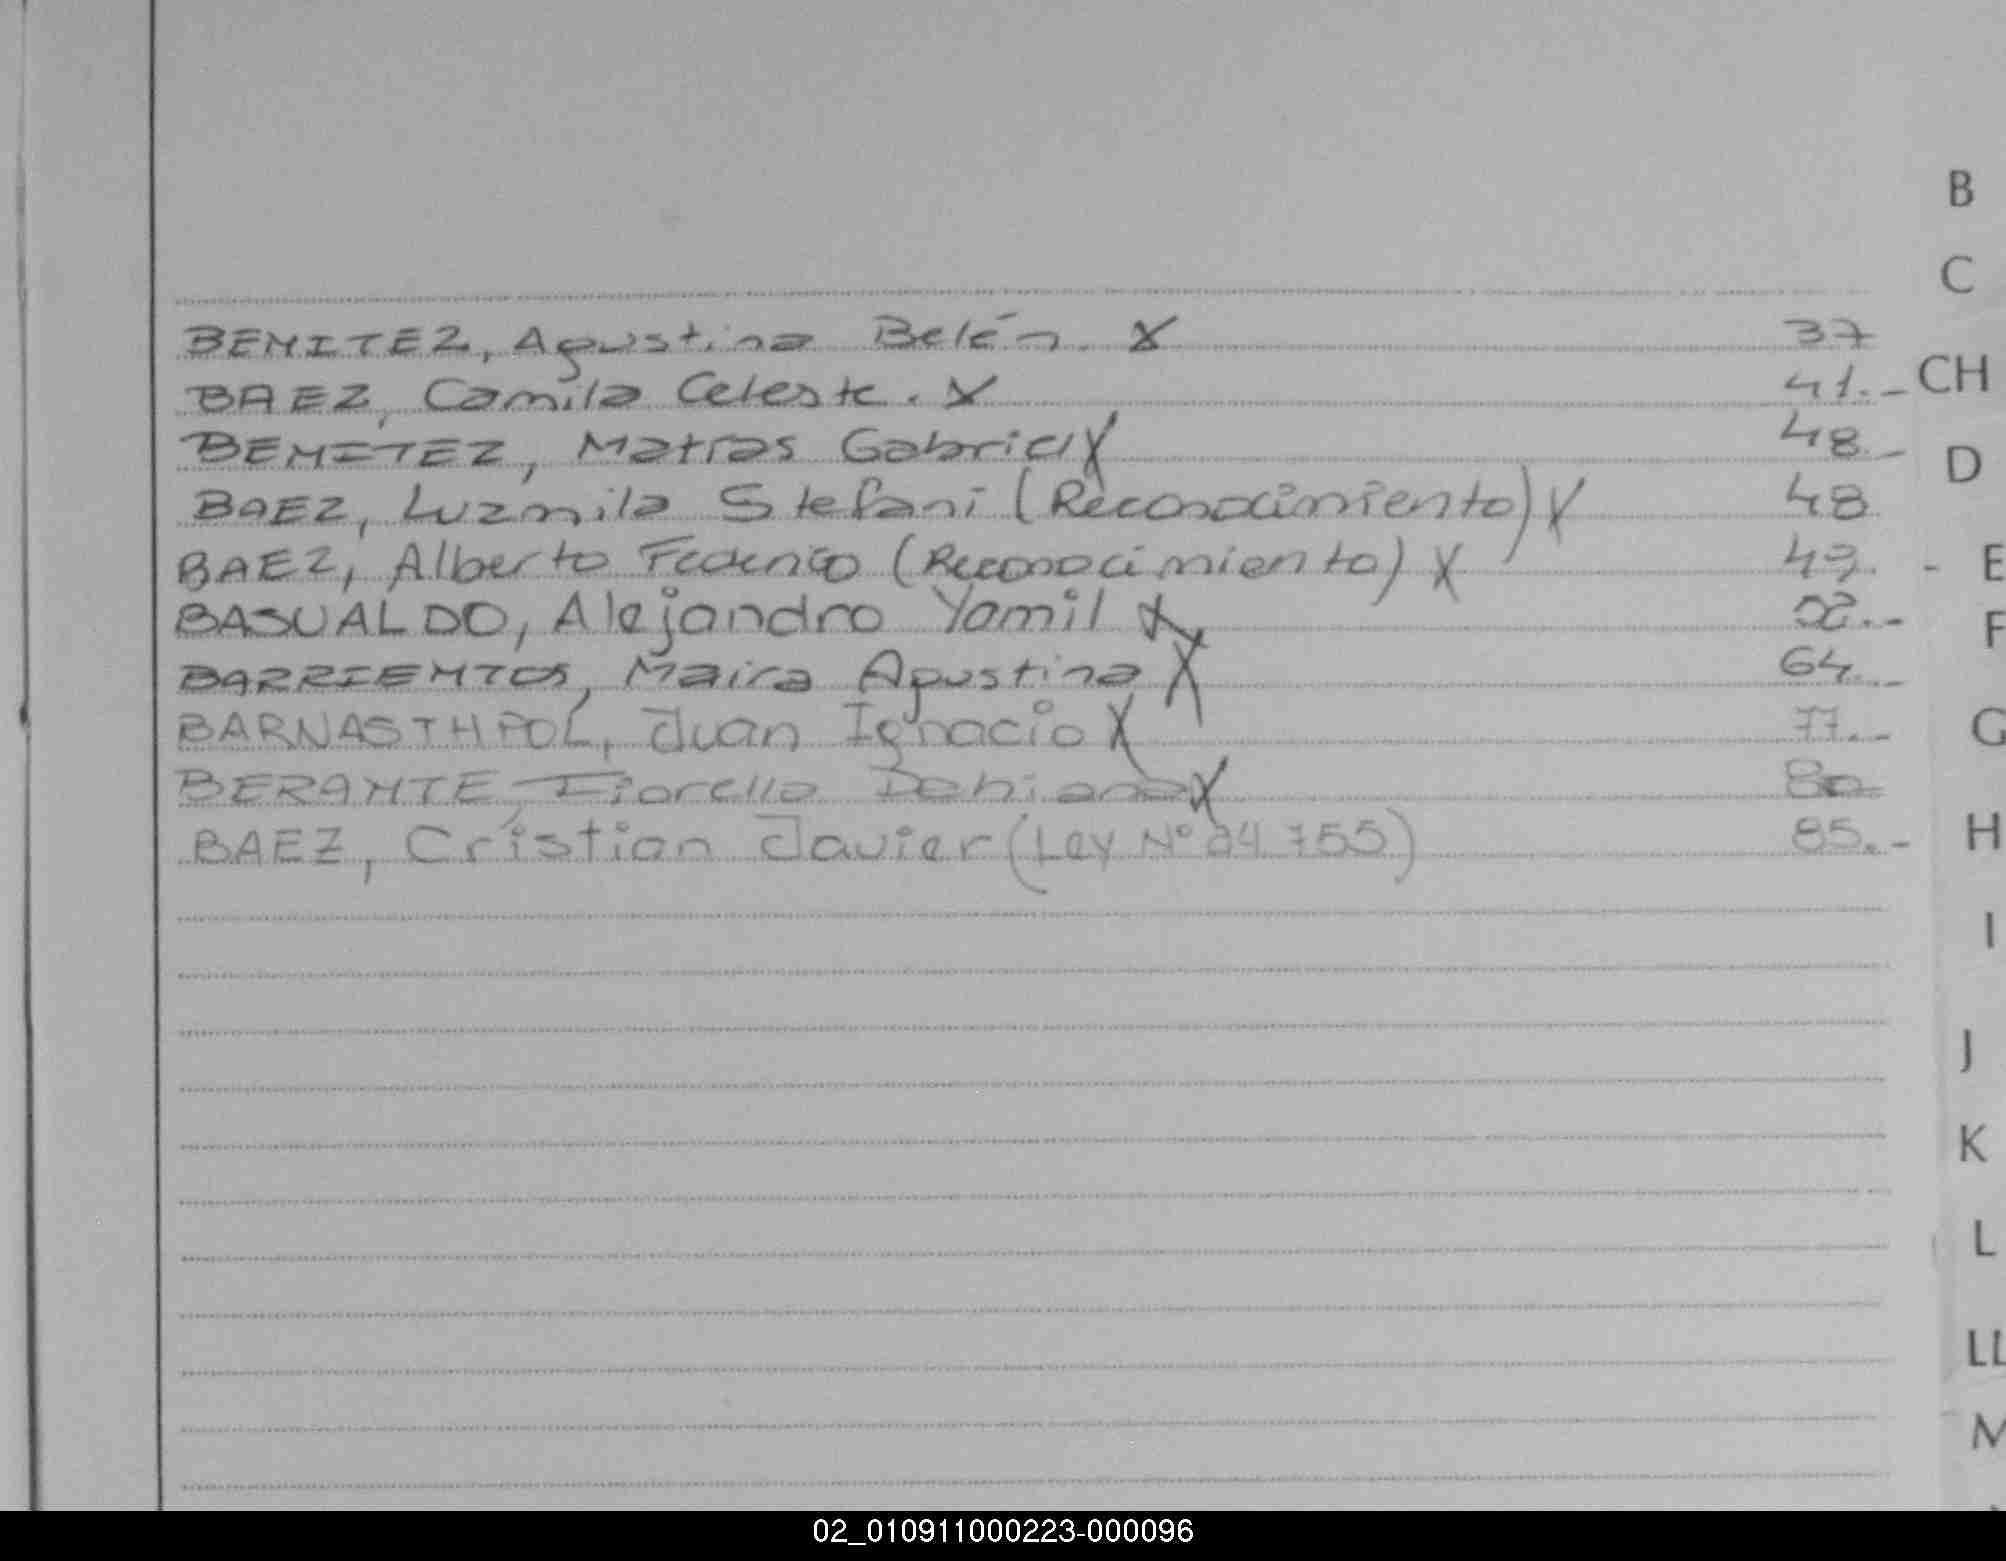 BENITEZ, Agustina Belén. X 37
BAEZ, Camila Celeste. X 41.-
BENITEZ, Matías Gabriel X 48.-
BAEZ, Luzmila Stefani (Reconocimiento) X 48
BAEZ, Alberto Federico (Reconocimiento) X 49. -
BASUALDO, Alejandro Yamil X .-
BARRIENTOS, Maira Agustina X 64.-
BARNASTHPOL, Juan Ignacio X 77.-
BERANTE, Fiorella Dahiana X 80
BAEZ, Cristian Javier (Ley Nº 24755) 85.-
B
C
CH
D
E
F
G
H
I
J
K
L
LL
M
02_010911000223-000096